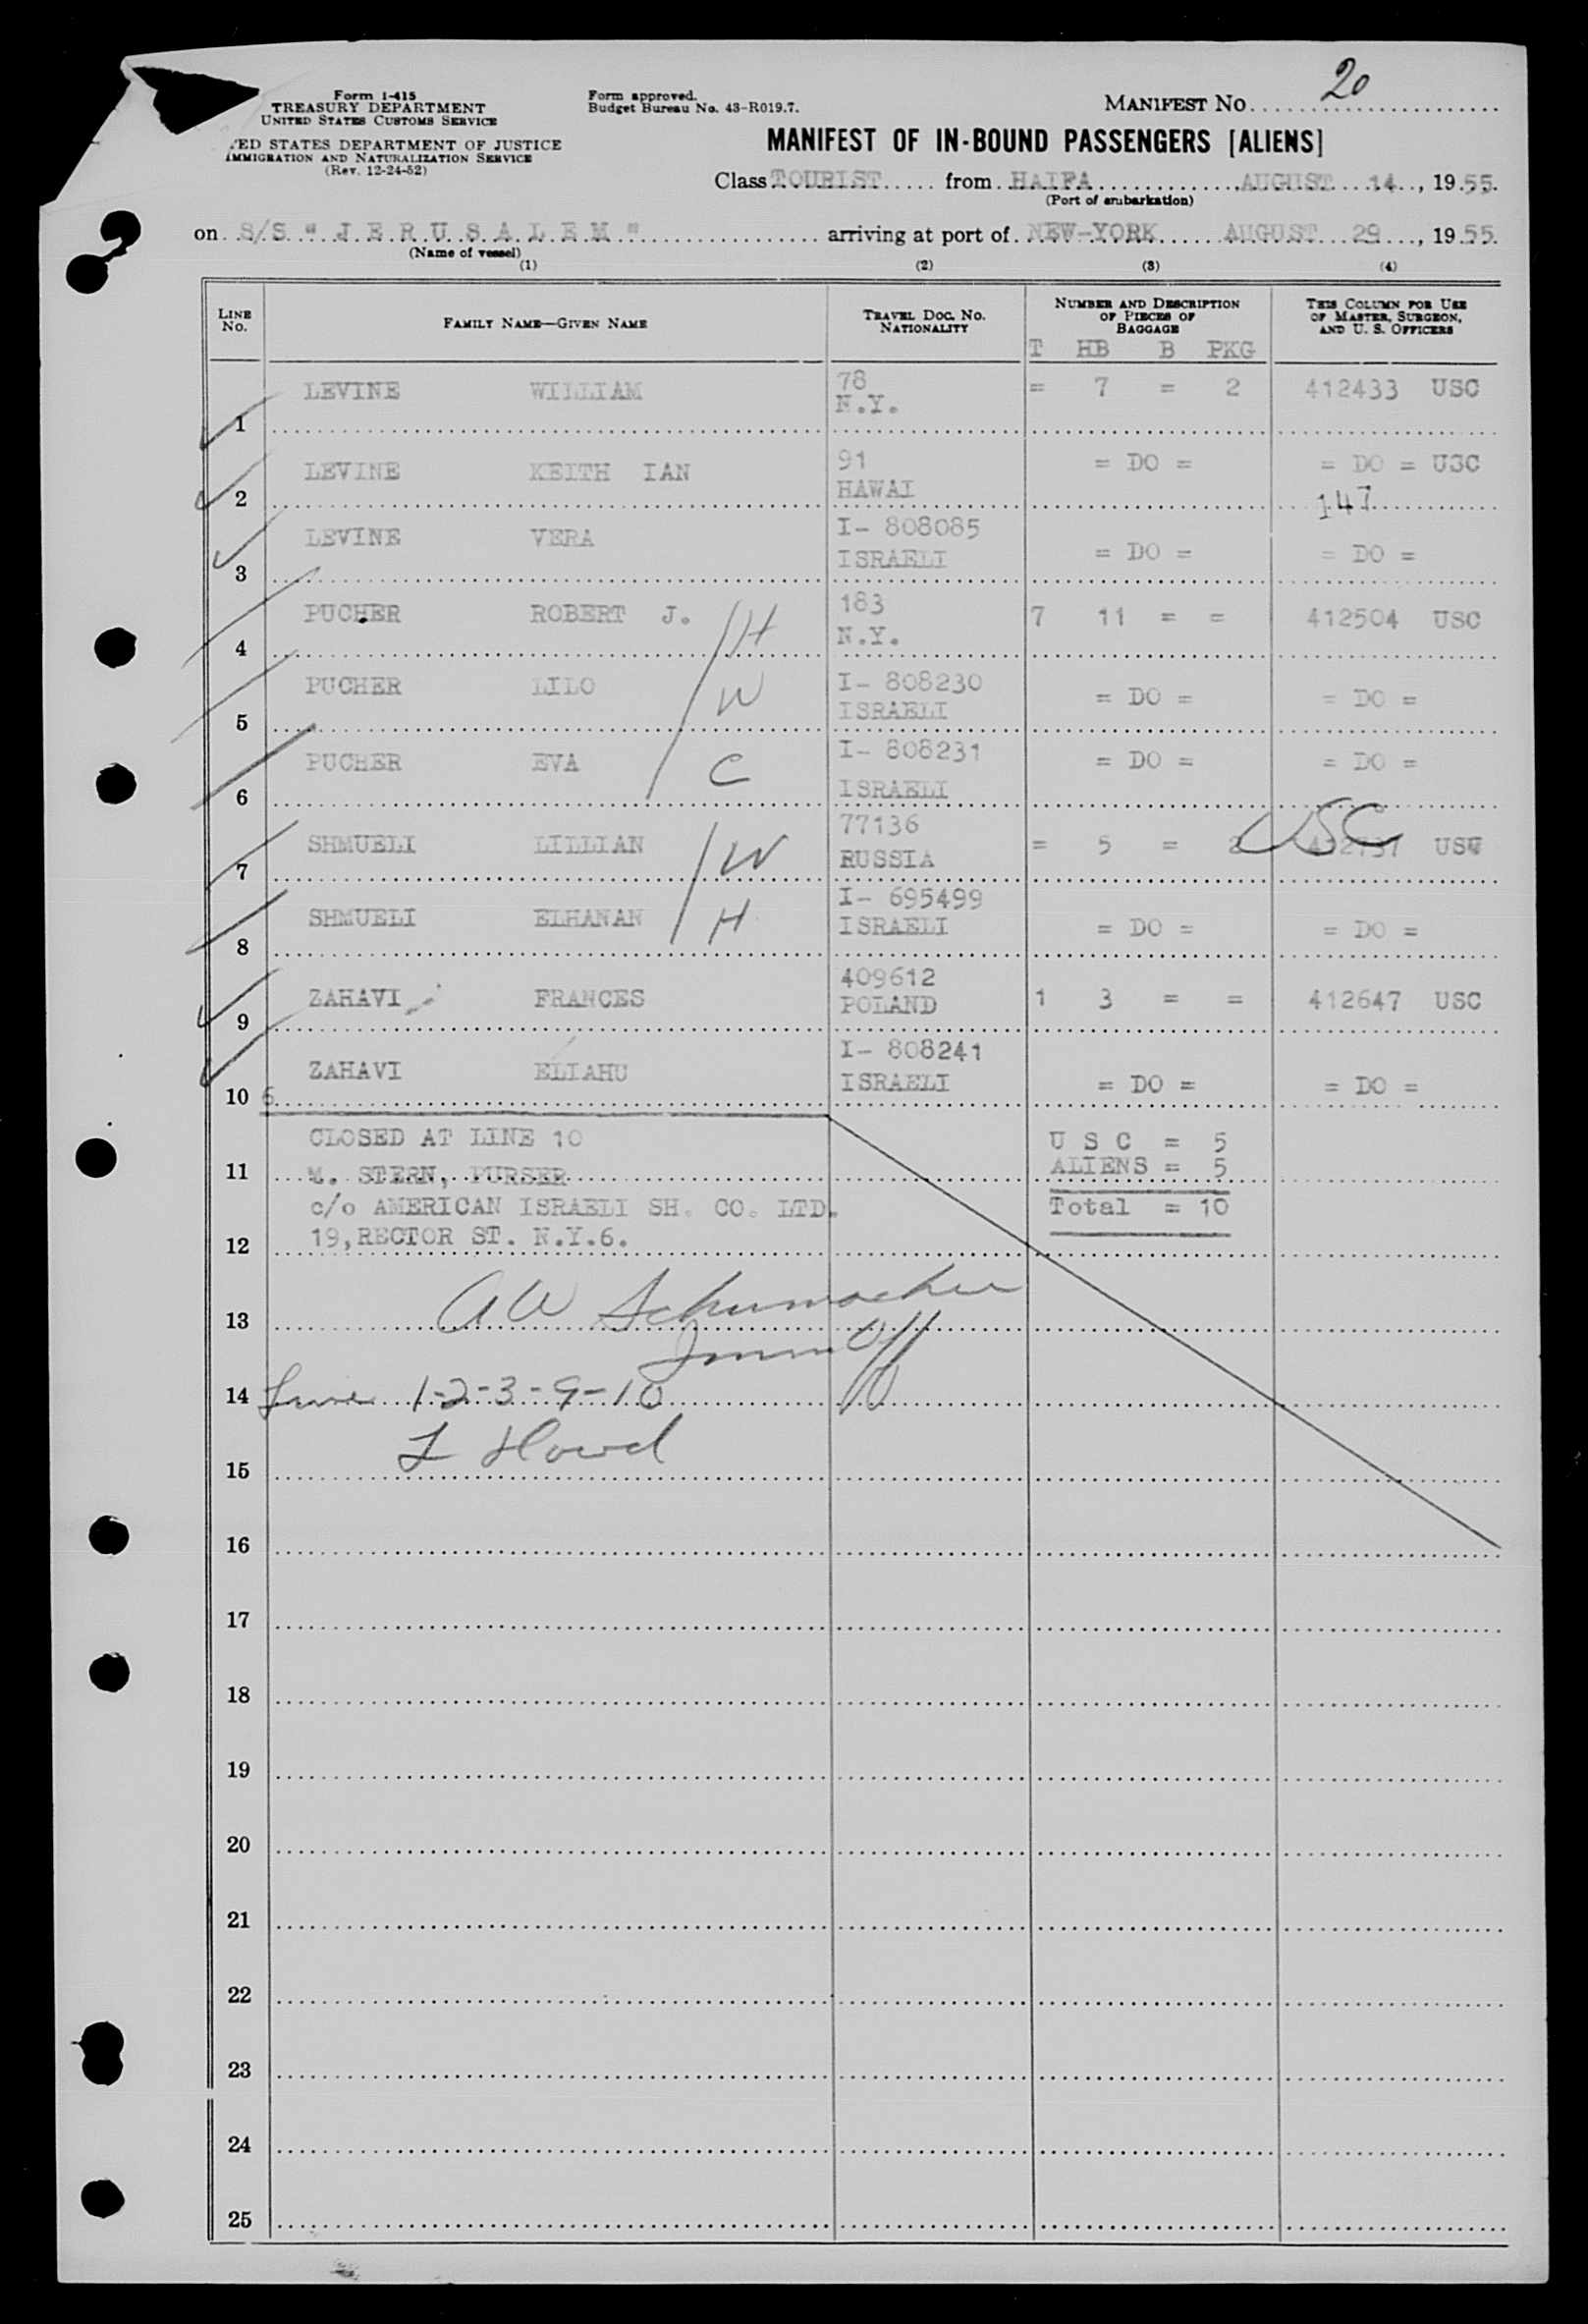 Form I-415
TREASURY DEPARTMENT
UNITED STATES CUSTOMS SERVICE
TED STATES DEPARTMENT OF JUSTICE
IMMIGRATION AND NATURALIZATION SERVICE
(Rev. 12-24-52)
Form approved.
Budget Bureau No. 43-R019.7.
MANIFEST No. 20
MANIFEST OF IN-BOUND PASSENGERS [ALIENS]
Class TOURIST from HAIFA AUGUST 14, 1955.
(Port of embarkation)
on S/S "JERUSALEM" arriving at port of NEW-YORK AUGUST 29, 1955.
(Name of vessel)
(1) (2) (3) (4)
LINE No. FAMILY NAME—GIVEN NAME TRAVEL DOC. No. NATIONALITY NUMBER AND DESCRIPTION OF PIECES OF BAGGAGE THIS COLUMN FOR USE OF MASTER, SURGEON, AND U. S. OFFICERS
T HB B PKG
1 LEVINE WILLIAM 78 N.Y. = 7 = 2 412433 USC
2 LEVINE KEITH IAN 91 HAWAI = DO = = DO = USC
147
3 LEVINE VERA I- 808085 ISRAELI = DO = = DO =
4 PUCHER ROBERT J. H 183 N.Y. 7 11 = = 412504 USC
5 PUCHER LILO W I- 808230 ISRAELI = DO = = DO =
6 PUCHER EVA C I- 808231 ISRAELI = DO = = DO =
7 SHMUELI LILLIAN W 77136 RUSSIA = 5 = 2 USC USC
8 SHMUELI ELHANAN H I- 695499 ISRAELI = DO = = DO =
9 ZAHAVI FRANCES 409612 POLAND 1 3 = = 412647 USC
10 6 ZAHAVI ELIAHU I- 808241 ISRAELI = DO = = DO =
CLOSED AT LINE 10 U S C = 5
11 M. STERN, PURSER ALIENS = 5
c/o AMERICAN ISRAELI SH. CO. LTD. Total = 10
12 19, RECTOR ST. N.Y.6.
13 A W Schumacher
Imm Off
14 Lines 1-2-3-9-10
L Howd
15
16
17
18
19
20
21
22
23
24
25